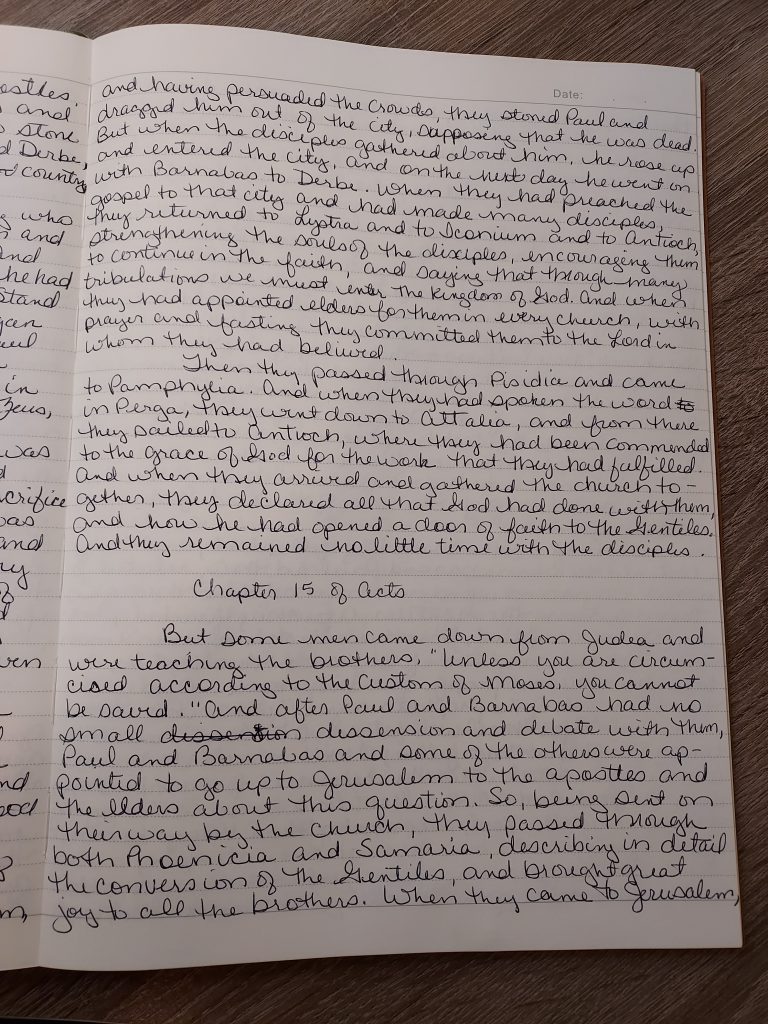 estles.
and
stone
d Derbe,
d country
who
and
and
he had
stand
in
Zeus,
was
crifice
was
and
ven
nd
m,
Date:
and having persuaded the crowds, they stoned Paul and
dragged him out of the city, supposing that he was dead.
But when the disciples gathered about him, he rose up
and entered the city, and on the next day he went on
with Barnabas to Derbe. When they had preached the
gospel to that city and had made many disciples,
they returned to Lystra and to Iconium and to Antioch,
strengthening the souls of the disciples, encouraging them
to continue in the faith, and saying that through many
tribulations we must enter the kingdom of God. And when
they had appointed elders for them in every church, with
prayer and fasting they committed them to the Lord in
whom they had believed.
Then they passed through Pisidia and came
to Pamphylia. And when they had spoken the word to
in Perga, they went down to Attalia, and from there
they sailed to Antioch, where they had been commended
to the grace of God for the work that they had fulfilled.
And when they arrived and gathered the church to-
gether, they declared all that God had done with them,
and how he had opened a door of faith to the Gentiles.
And they remained no little time with the disciples.
Chapter 15 of Acts
But some men came down from Judea and
were teaching the brothers, "Unless you are circum-
cised according to the custom of Moses, you cannot
be saved." And after Paul and Barnabas had no
small dissention dissension and debate with them,
Paul and Barnabas and some of the others were ap-
pointed to go up to Jerusalem to the apostles and
the elders about this question. So, being sent on
their way by the church, they passed through
both Phoenicia and Samaria, describing in detail
the conversion of the Gentiles, and brought great
joy to all the brothers. When they came to Jerusalem,